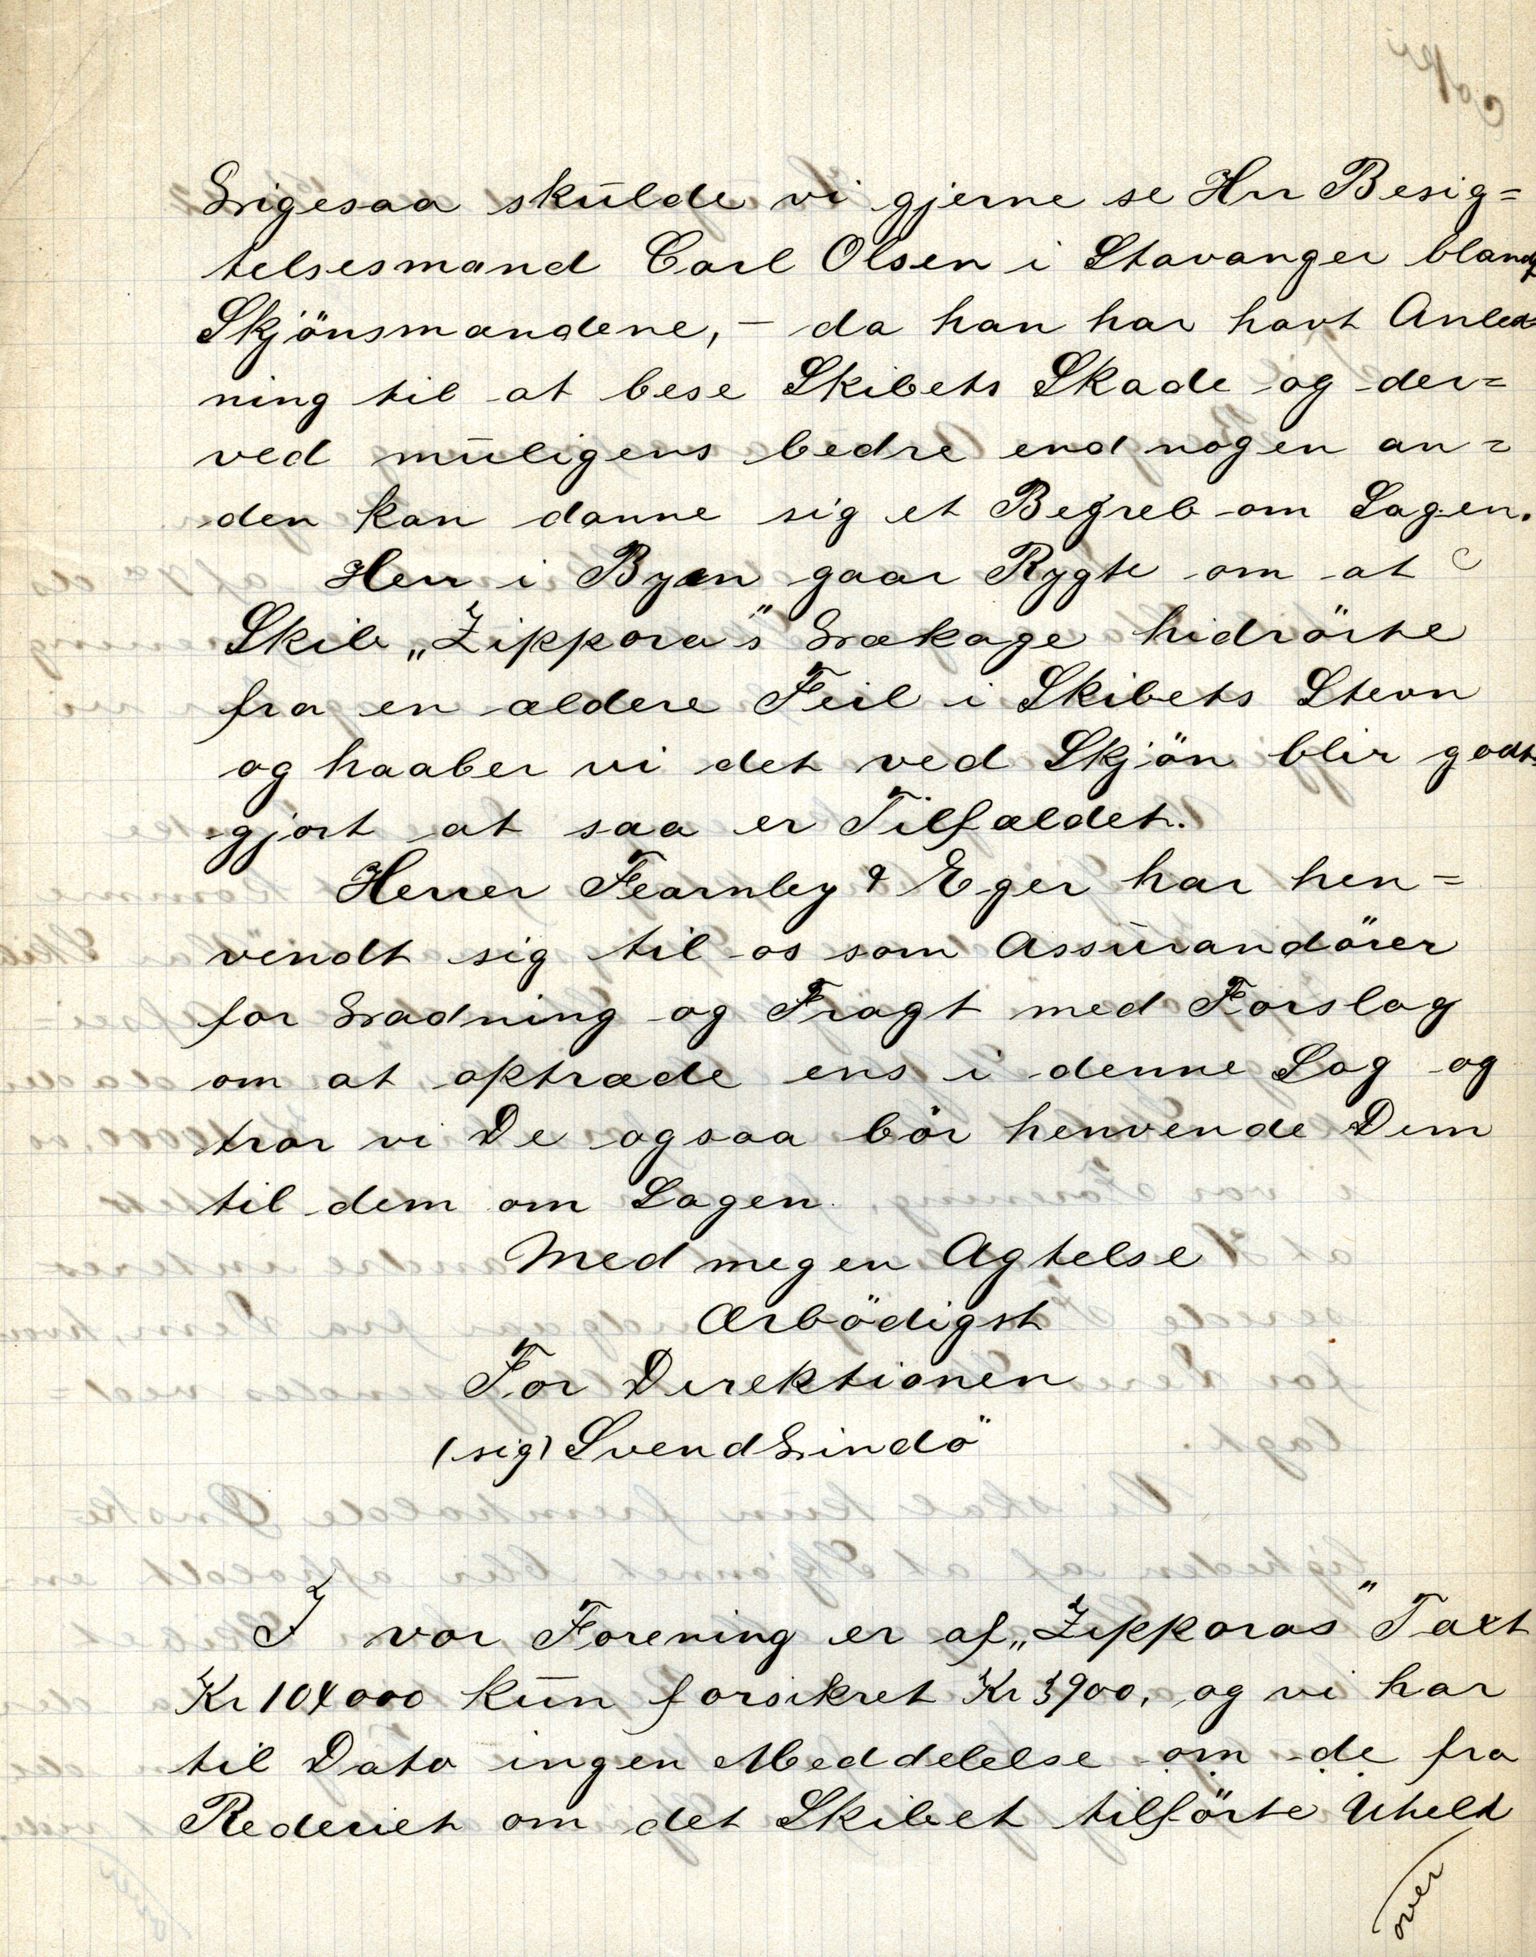 Ligesaa skulde vi gjerne se Hrr Besig=
telsesmand Carl Olsen i Stavanger blandt
Skjönsmændene, – da han har havt Anled=
ning til at bese Skibets Skade og der=
ved muligens bedre end nogen an=
den kan danne sig et Begreb om Sagen.
Herr i Byen gaar Rygte om at
Skib „Zippora's" Lækage hidrörte
fra en ældere Feil i Skibets Stevn
og haaber vi det ved Skjön blir godt=
gjort at saa er Tilfældet.
Herrer Fearnley & Eger har hen=
vendt sig til os som Assurandörer
for Ladning og Fragt med Forslag
om at optræde ens i denne Sag og
tror vi De ogsaa bör henvende Dem
til dem om Sagen.
Med megen Agtelse
Ærbödigst
For Direktionen
(sig) Svend Lindö
I vor Forening er af „Zipporas" Taxt
Kr 104000 kun forsikret Kr 3900, og vi har
til Dato ingen Meddelelse om de fra
Rederiet om det Skibet tilförte Uheld
over